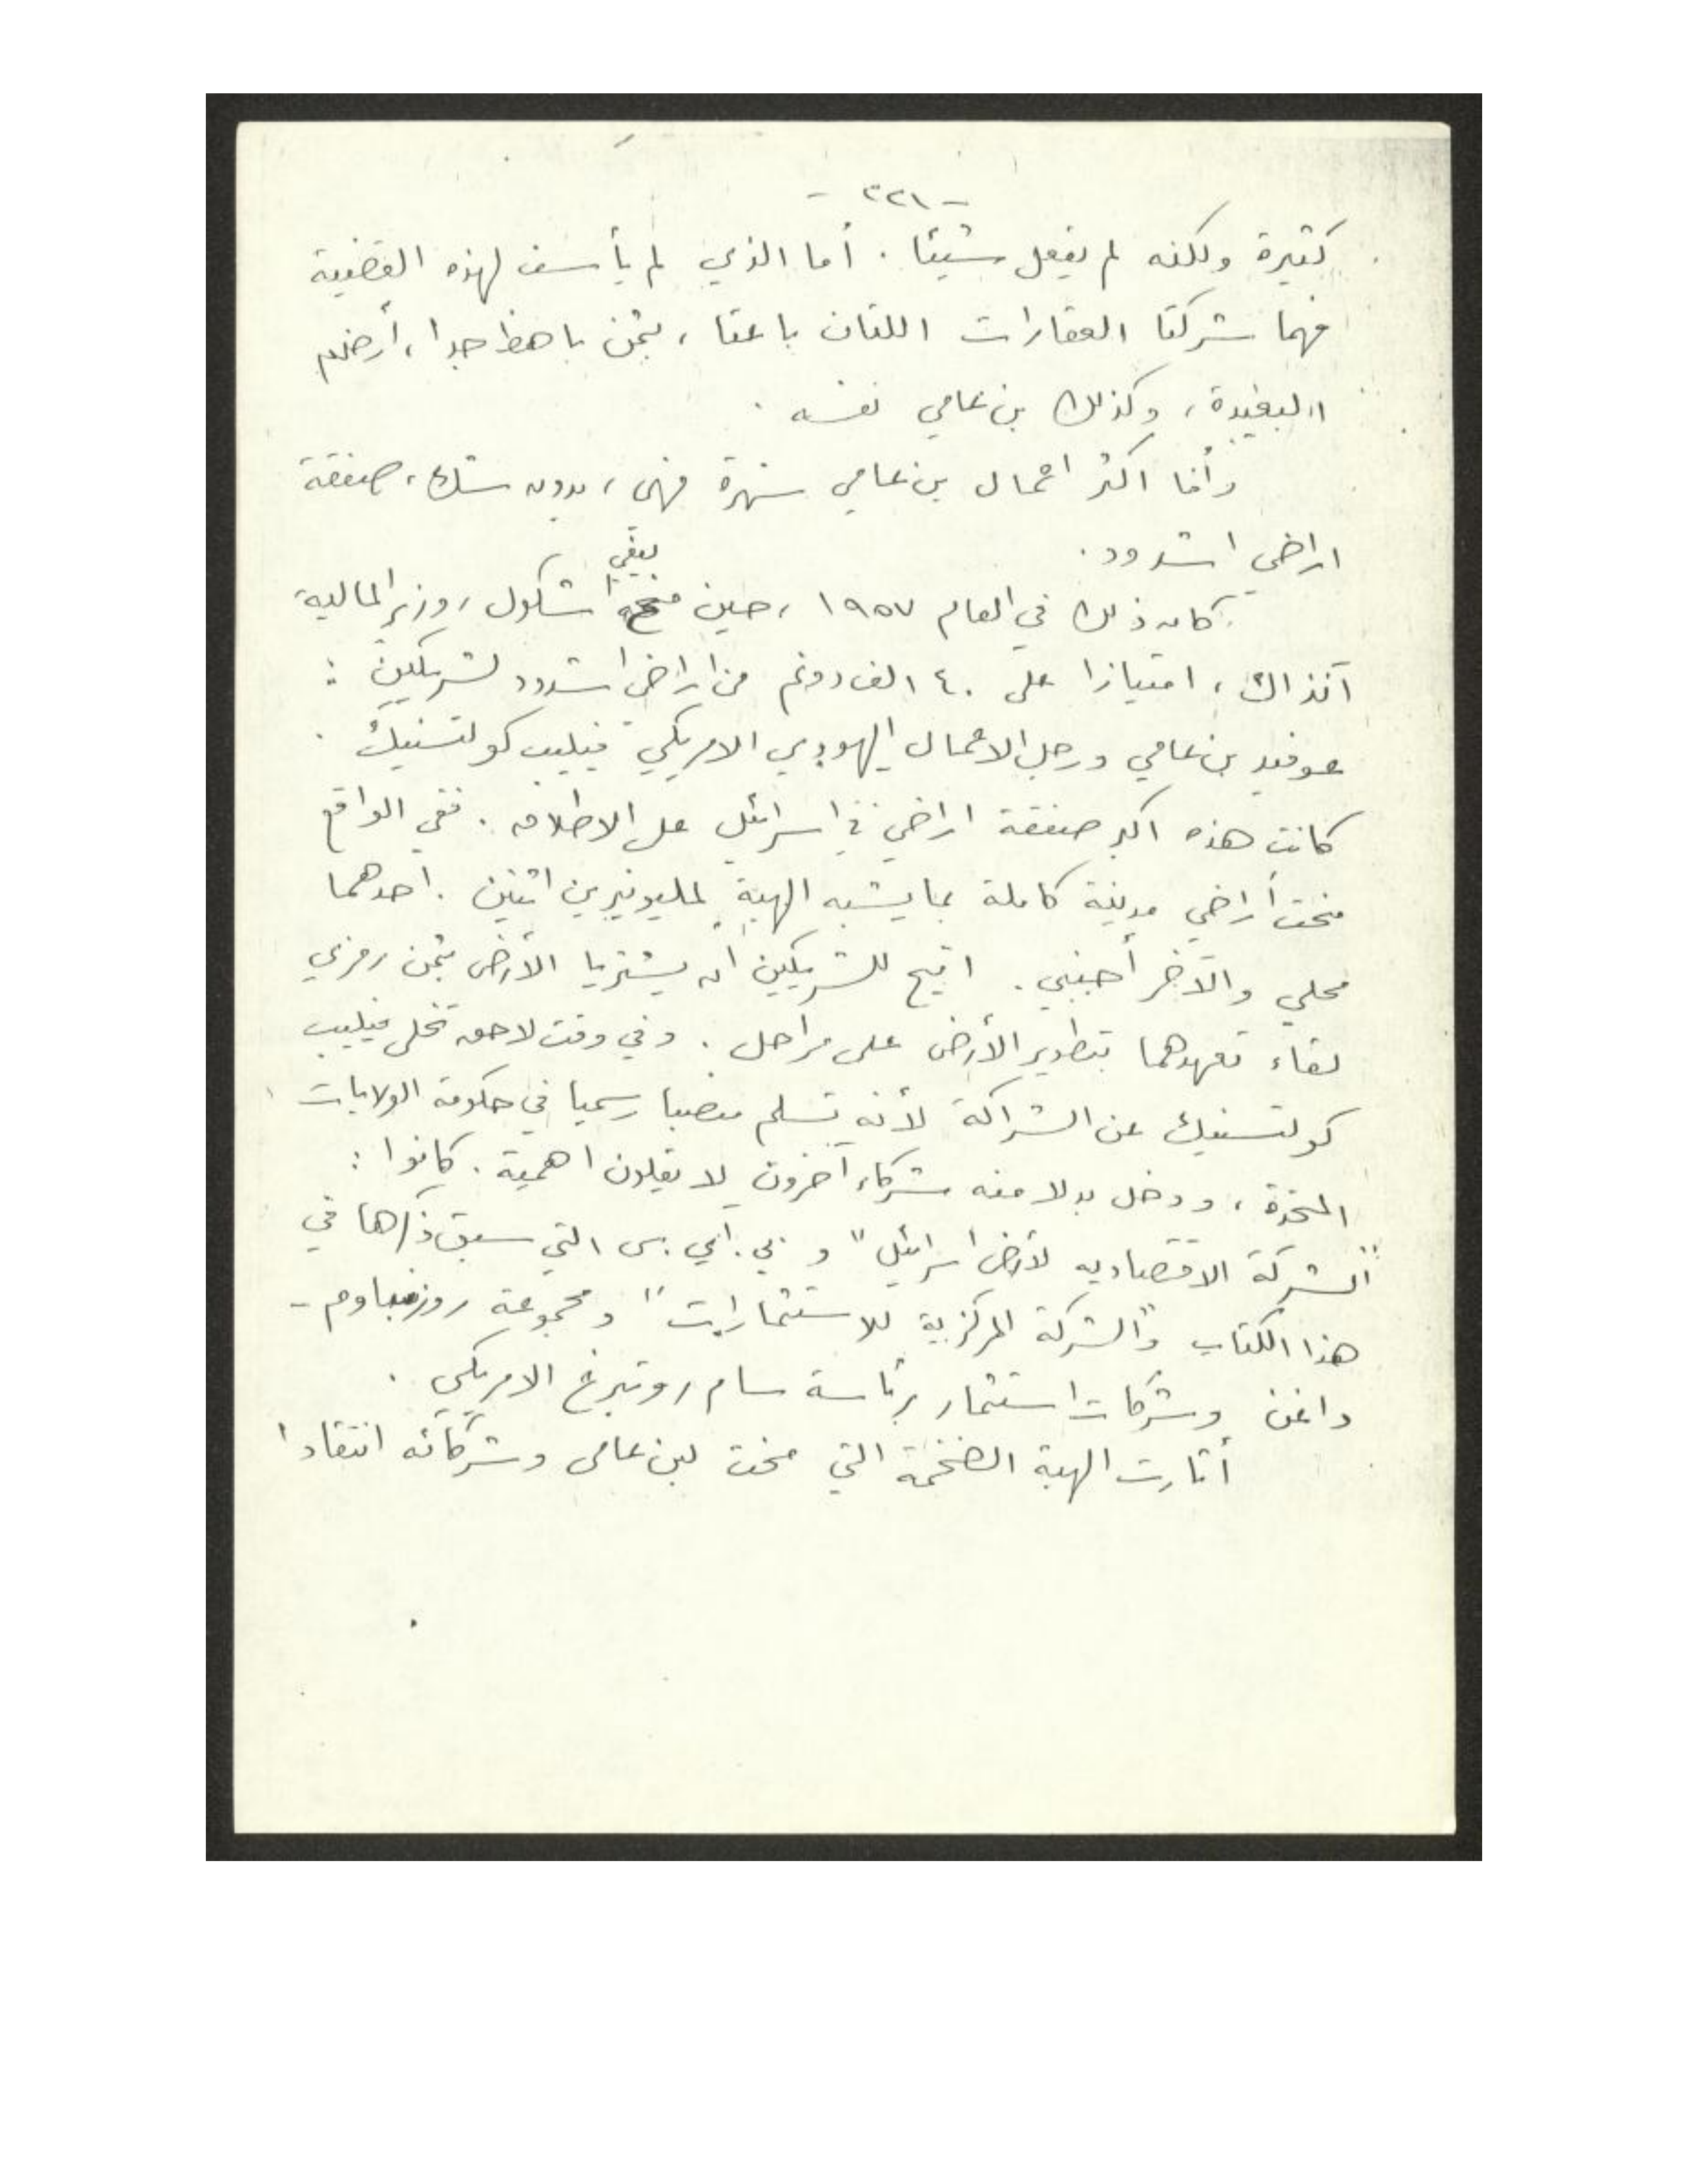 - ٣٢١ -
كثيرة ولكنه لم يفعل شيئا . أما الذي لم يأسف لهذه القضية
فهما شركتا العقارات اللتان باعتا ، بثمن باهظ جدا ، أرضهم
البعيدة ، وكذلك بن عامي نفسه .
وأما اكثر اعمال بن عامي شهرة فهي ، بدون شك ، صفقة
اراضي اشدود .
ليفي
كان ذلك في العام ١٩٥٧ ، حين منح اشكول ، وزير المالية
آنذاك ، امتيازا على ٤٠ الف دونم من اراضي اشدود لشريكين :
عوفيد بن عامي ورجل الاعمال اليهودي الامريكي فيليب كولتسنيك .
كانت هذه اكبر صفقة اراضي في اسرائيل على الاطلاق . ففي الواقع
منحت أراضي مدينة كاملة بما يشبه الهبة لمليونيرين اثنين . احدهما
محلي والآخر أجنبي . اتيح للشريكين ان يشتريا الأرض بثمن رمزي
لقاء تعهدهما بتطوير الأرض على مراحل . وفي وقت لاحق تخلى فيليب
كولتسنيك عن الشراكة لأنه تسلم منصبا رسميا في حكومة الولايات
المتحدة ، ودخل بدلا منه شركاء آخرون لا يقلون اهمية . كانوا :
"الشركة الاقتصاديه لأرض اسرائيل" و بي . اي . سي التي سبق ذكرها في
هذا الكتاب و"الشركة المركزية للاستثمارات" ومجموعة روزنباوم -
داغن وشركات استثمار برئاسة سام روتبرغ الامريكي .
أثارت الهبة الضخمة التي منحت لبن عامي وشركائه انتقادا